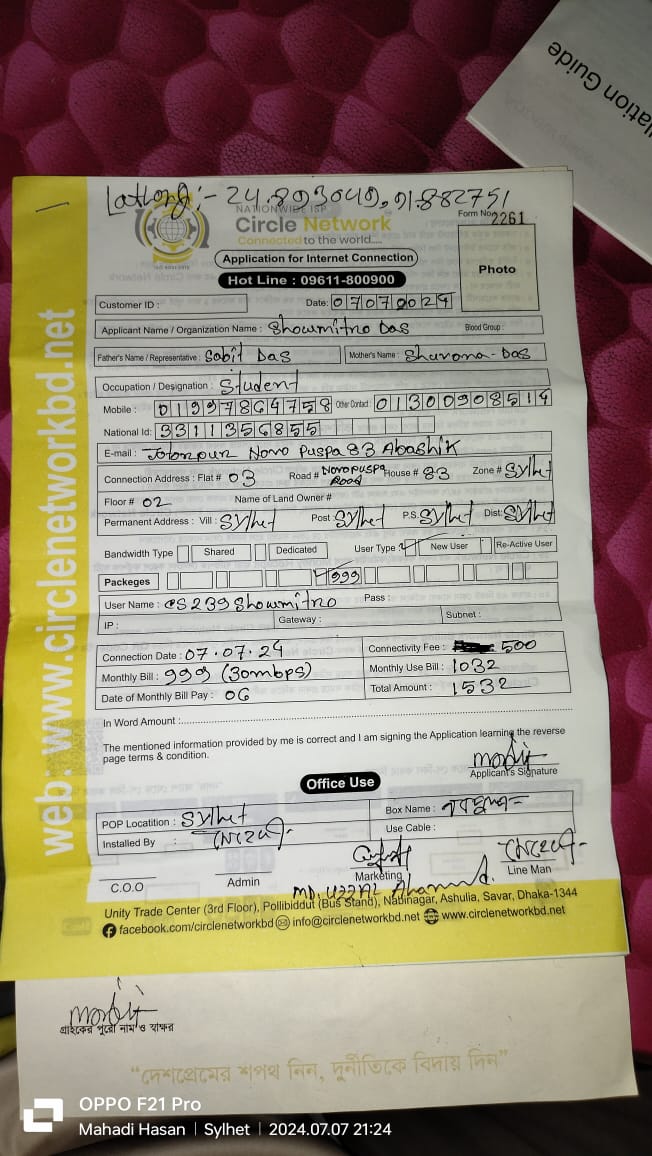 llation Guide
LatLong:- 24.893040, 91.882751
NATIONWIDE ISP
Circle Network
Connected to the world....
Form No. 2261
Application for Internet Connection
Hot Line : 09611-800900
Photo
Customer ID :
Date: 07070024
Applicant Name / Organization Name : Showmitro Das Blood Group :
Father's Name / Representative : Sabit Das Mother's Name : Shuvona-Das
Occupation / Designation : Student
Mobile : 01997864758 Other Contact : 01300908514
National Id: 3311356855
E-mail : Jotorpur Novo Puspa 83 Abashik
Connection Address : Flat # 03 Road # Novo Puspa Road House # 83 Zone # Sylhet
Floor # 02 Name of Land Owner #
Permanent Address : Vill : Sylhet Post : Sylhet P.S. Sylhet Dist: Sylhet
Bandwidth Type Shared Dedicated User Type : New User Re-Active User
Packeges 999
User Name : cs239showmitro Pass :
IP : Gateway : Subnet :
Connection Date : 07.07.24 Connectivity Fee : 500
Monthly Bill : 999 (30mbps) Monthly Use Bill : 1032
Date of Monthly Bill Pay : 06 Total Amount : 1532
In Word Amount :
The mentioned information provided by me is correct and I am signing the Application learning the reverse
page terms & condition.
Applicant's Signature
Office Use
POP Locatition : Sylhet Box Name :
Installed By : Use Cable :
C.O.O Admin Marketing Line Man
MD. Uzzal Ahammd.
Unity Trade Center (3rd Floor), Pollibiddut (Bus Stand), Nabinagar, Ashulia, Savar, Dhaka-1344
facebook.com/circlenetworkbd info@circlenetworkbd.net www.circlenetworkbd.net
web: www.circlenetworkbd.net
গ্রাহকের পুরো নাম ও স্বাক্ষর
“দেশপ্রেমের শপথ নিন, দুর্নীতিকে বিদায় দিন”
OPPO F21 Pro
Mahadi Hasan | Sylhet | 2024.07.07 21:24